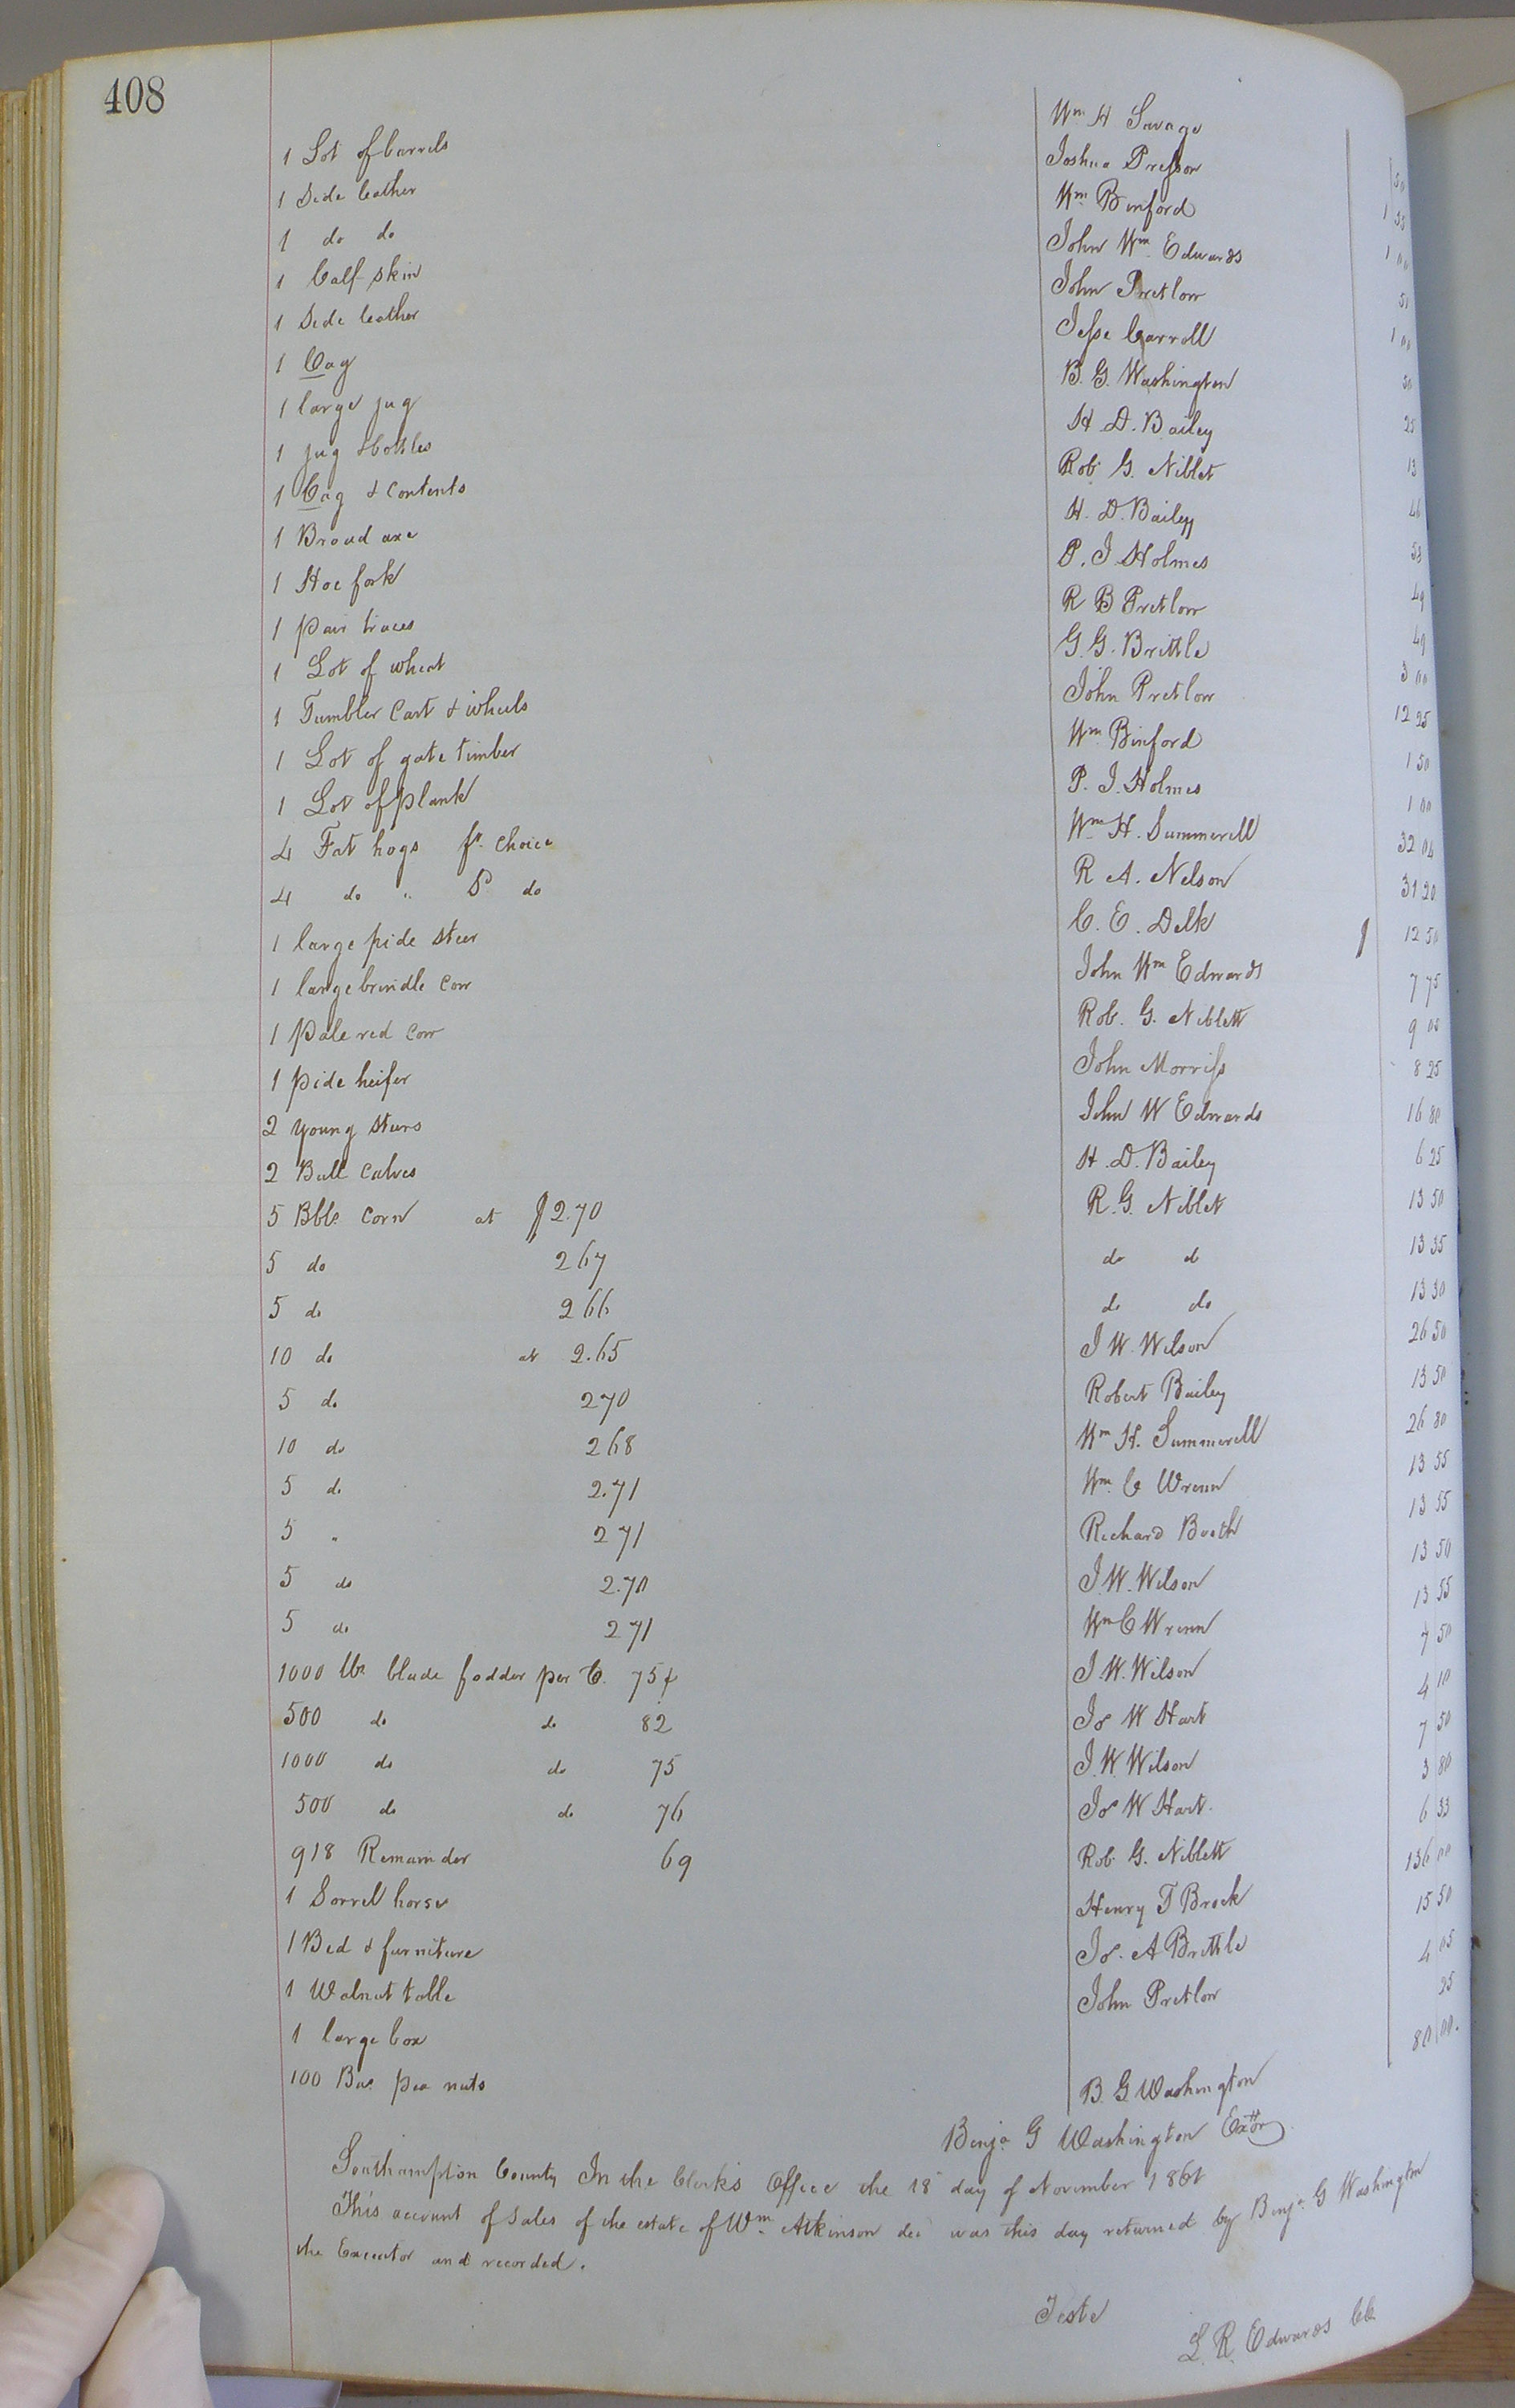 408
1 Lot of barrels Wm H Savage 50
1 Side leather Joshua Presson 1 35
1 do do Wm Binford 1 00
1 Calf skin John Wm Edwards 51
1 Side leather John Pretlow 1 00
1 Cag Jesse Carroll 50
1 large jug B. G. Washington 25
1 jug & bottles H. D. Bailey 13
1 Cag & Contents Rob. G. Niblet 46
1 Broad axe H. D. Bailey 53
1 Hoe fork P. J. Holmes 49
1 pair traces R B Pretlow 49
1 Lot of wheat G. G. Brittle 3 00
1 Tumbler Cart & wheels John Pretlow 12 25
1 Lot of gate timber Wm Binford 1 50
1 Lot of plank P. J. Holmes 1 00
4 Fat hogs fs. choice Wm H. Summerell 32 04
4 do " do R A. Nelson 31 20
1 large pide steer C. E. Delk 12 50
1 large brindle Cow John Wm Edwards 7 75
1 Pale red Cow Rob. G. Niblett 9 05
1 pide heifer John Morriss 8 25
2 young steers John W Edwards 16 80
2 Bull Calves H. D. Bailey 6 25
5 Bbls Corn at $2.70 R. G. Niblet 13 50
5 do 267 do do 13 35
5 do 266 do do 13 30
10 do at 2.65 J W. Wilson 26 50
5 do 270 Robert Bailey 13 50
10 do 268 Wm H. Summerell 26 80
5 do 2.71 Wm C Wrenn 13 55
5 " 271 Richard Booth 13 55
5 do 2.70 J. W. Wilson 13 50
5 do 271 Wm C Wrenn 13 55
1000 lbs blade fodder per C. 75¢ J. W. Wilson 7 50
500 do do 82 Jos W Hart 4 10
1000 do do 75 J. W. Wilson 7 50
500 do do 76 Jos W Hart. 3 80
918 Remainder 69 Rob. G. Niblett 6 33
1 Sorrel horse Henry T Brock 136 00
1 Bed & furniture Jos. A Brittle 15 50
1 Walnut table John Pretlow 4 05
1 large box 25
100 Bus. pea nuts B. G Washington 80 00.
Benja G Washington Exetor
Southampton County In the Clerk's Office the 18 day of November 1861
This account of sales of the estate of Wm Atkinson dec was this day returned by Benja G Washington
the Executor and recorded.
Teste
L. R. Edwards CC